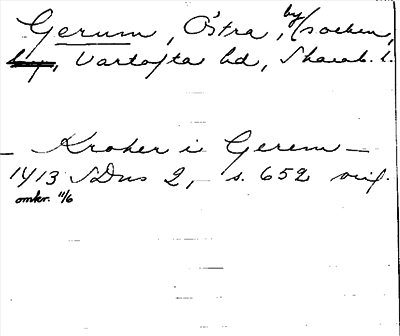 Gerum, Östra, by i socken,
Vartofta hd, Skarab. l.
— Kroker i Gerem —
1413 SDns 2, s. 652 orig.
omkr. 11/6